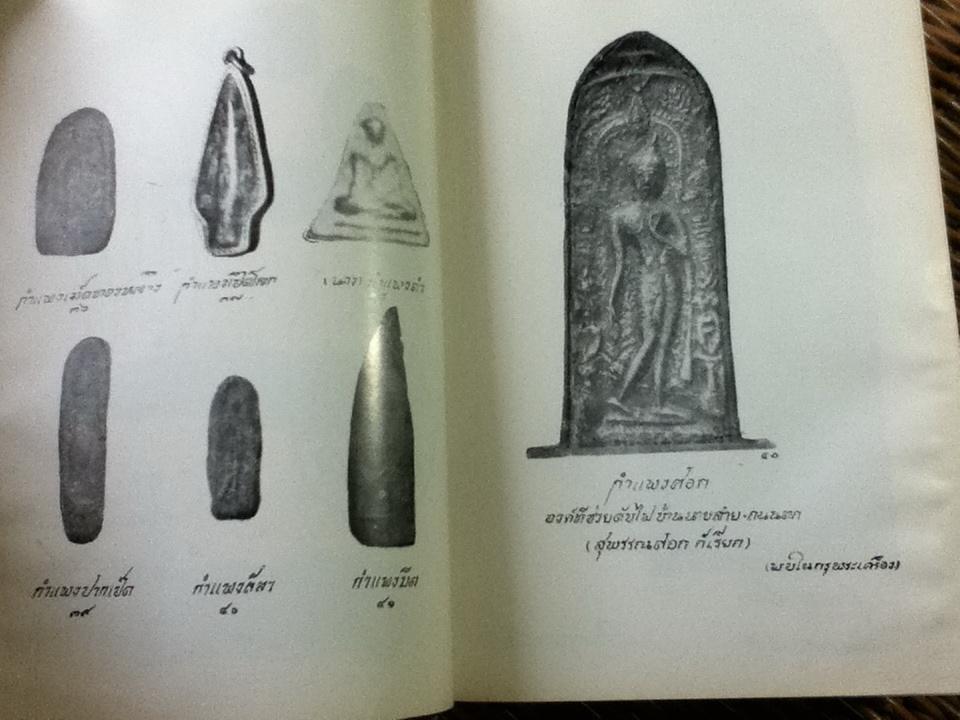 กำแพงเม็ดทองหลาง
๓๖
กำแพง
๓๗
(นาง) กำแพงดำ
กำแพงปากเป็ด
๓๙
กำแพงลีลา
๔๐
กำแพงมีด
๔๑
๔๑
กำแพงศอก
องค์ที่ช่วยดับไฟบ้านนายส่าย
(สุพรรณศอก ก็เรียก)
(พบในกรุพระเครื่อง)